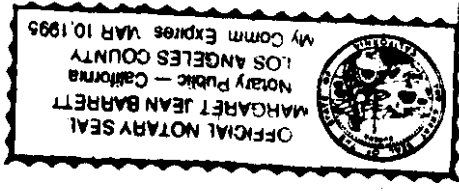 OFFICIAL NOTARY SEAL
MARGARET JEAN BARRETT
Notary Public — California
LOS ANGELES COUNTY
My Comm Expires MAR 10,1995